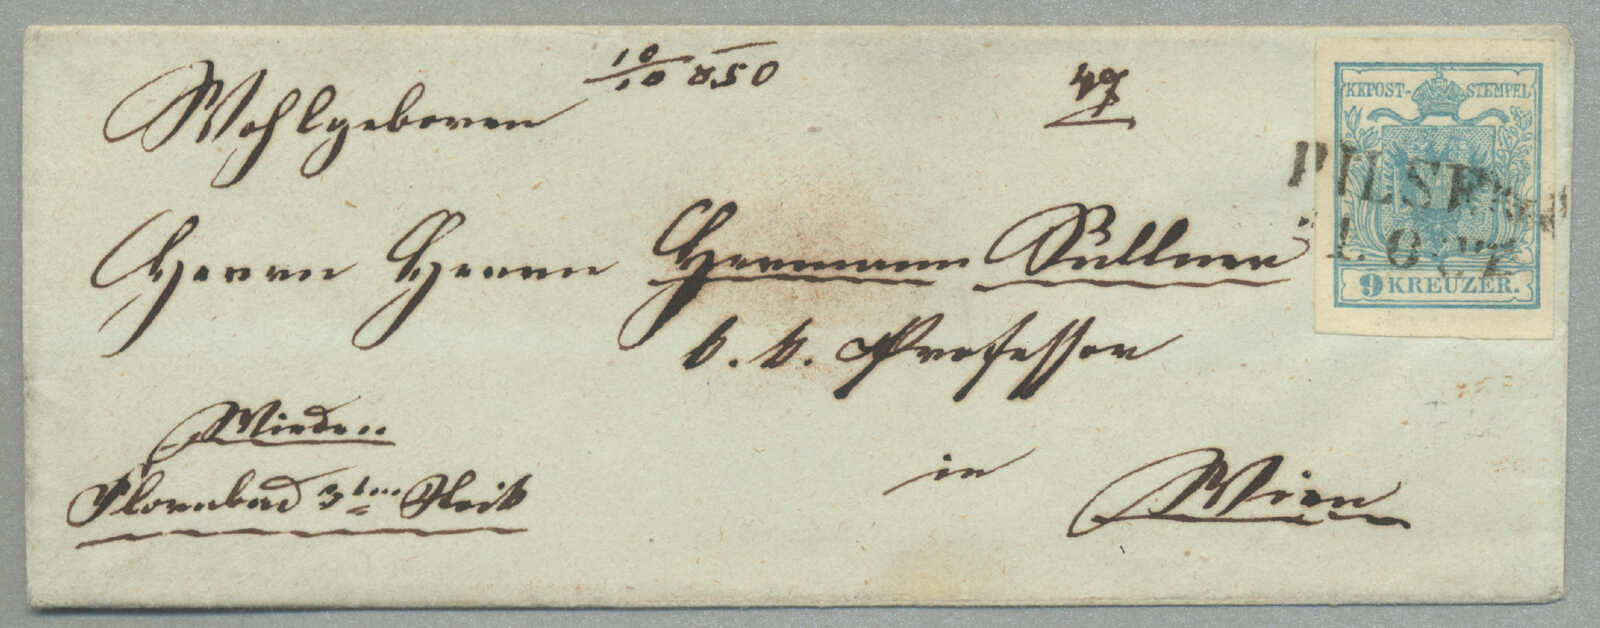 Wohlgeboren
10/10 850
47
KKPOST-STEMPEL
PILSEN
OCT
9 KREUZER.
Herrn Herrn Hermann Süllner
k. k. Professor
Wieden
Florabad 3ten Stock
in Wien